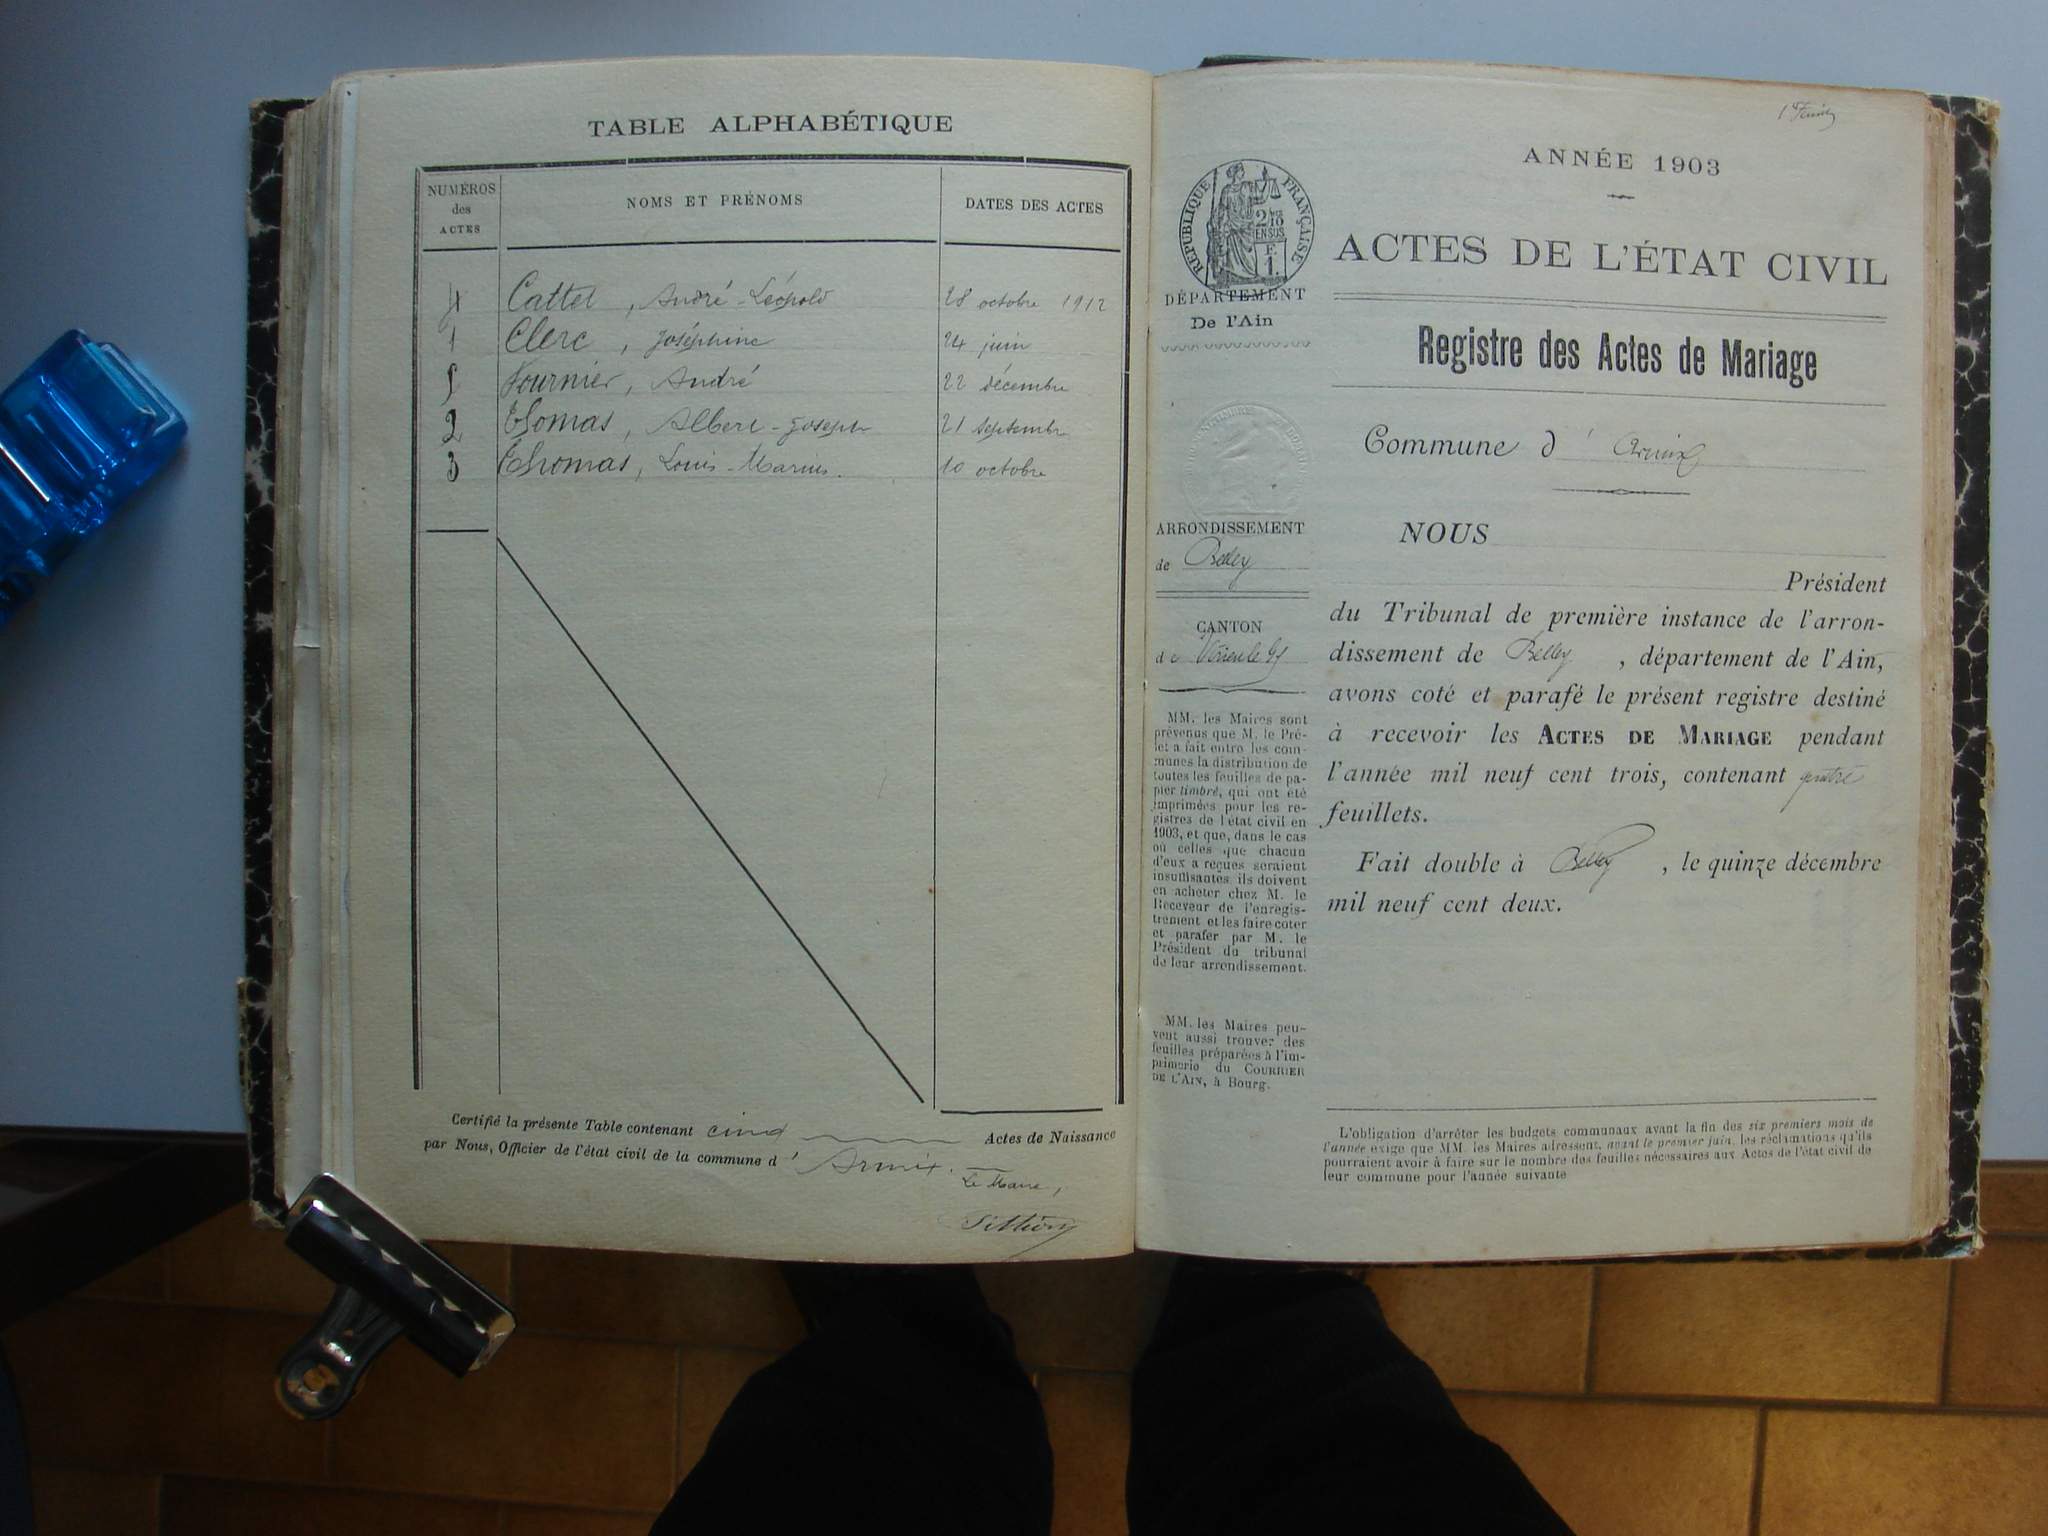 TABLE ALPHABÉTIQUE
NUMÉROS
des
ACTES
NOMS ET PRÉNOMS
DATES DES ACTES
4 Cattet, André-Léopold 28 octobre 1912
1 Clerc, Joséphine 24 juin
5 Fournier, André 22 décembre
2 Thomas, Albert-Joseph 21 septembre
3 Thomas, Louis-Marius. 10 octobre
Certifié la présente Table contenant cinq Actes de Naissance
par Nous, Officier de l'état civil de la commune d' Armix.
Le Maire,
1er
ANNÉE 1903
RÉPUBLIQUE FRANÇAISE
ACTES DE L'ÉTAT CIVIL
DÉPARTEMENT
De l'Ain
Registre des Actes de Mariage
Commune d' Armix
ARRONDISSEMENT
de Belley
CANTON
de Virieu le Gd
MM. les Maires sont
prévenus que M. le Pré-
fet a fait entre les com-
munes la distribution de
toutes les feuilles de pa-
pier timbré, qui ont été
imprimées pour les re-
gistres de l'état civil en
1903, et que, dans le cas
où celles que chacun
d'eux a reçues seraient
insuffisantes, ils doivent
en acheter chez M. le
Receveur de l'enregis-
trement et les faire coter
et parafer par M. le
Président du tribunal
de leur arrondissement.
MM. les Maires peu-
vent aussi trouver des
feuilles préparées à l'im-
primerie du COURRIER
DE L'AIN, à Bourg.
NOUS
Président
du Tribunal de première instance de l'arron-
dissement de Belley, département de l'Ain,
avons coté et parafé le présent registre destiné
à recevoir les ACTES DE MARIAGE pendant
l'année mil neuf cent trois, contenant quatre
feuillets.
Fait double à Belley, le quinze décembre
mil neuf cent deux.
L'obligation d'arrêter les budgets communaux avant la fin des six premiers mois de
l'année exige que MM. les Maires adressent, avant le premier juin, les réclamations qu'ils
pourraient avoir à faire sur le nombre des feuilles nécessaires aux Actes de l'état civil de
leur commune pour l'année suivante